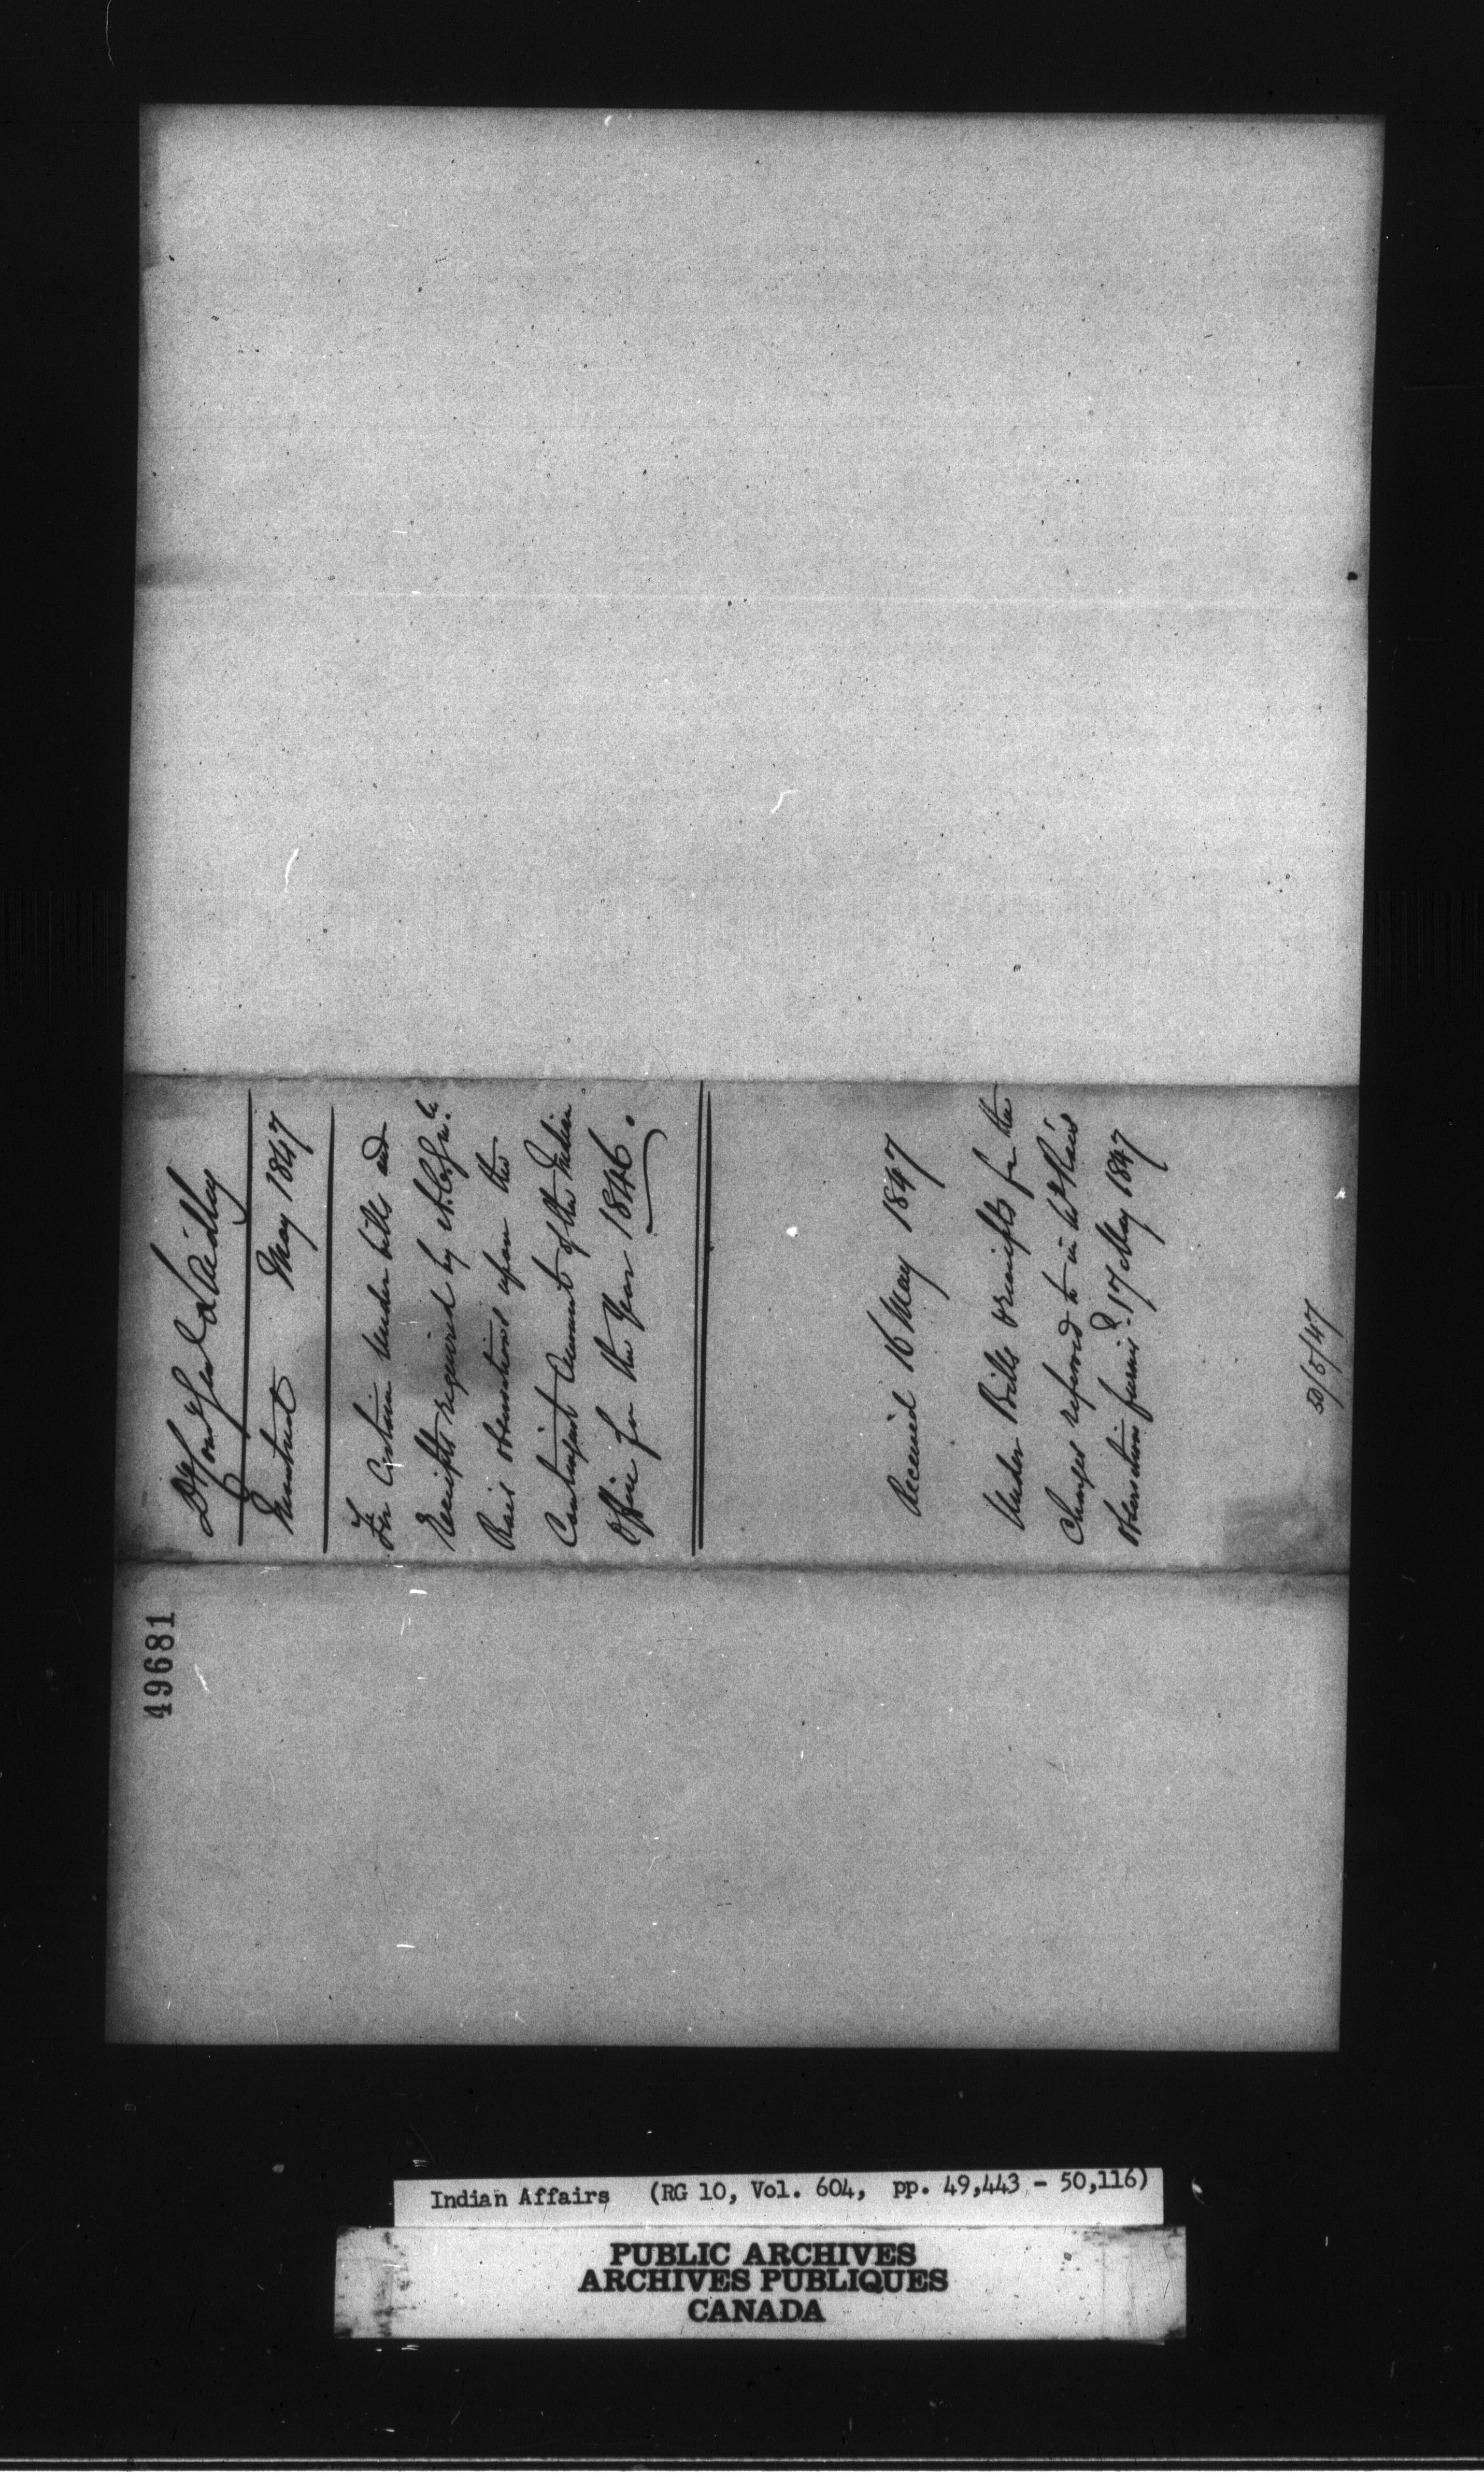 49681
Laidley
Montreal May 1847
For Certain Under bills and
Receipts required by
Rail observations upon the
Contingent Account of the Indian
Office for the Year 1846.
Received 16 May 1847
Under Bills & receipts for the
Charges referred to in
observations furnis.d 17 May 1847
Indian Affairs (RG 10, Vol. 604, pp. 49,443 - 50,116)
PUBLIC ARCHIVES
ARCHIVES PUBLIQUES
CANADA